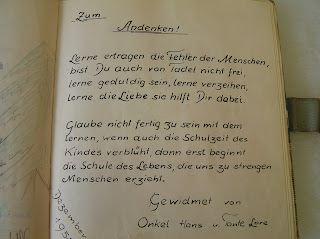 Zum
Andenken!
Lerne ertragen die Fehler der Menschen,
bist Du auch von Tadel nicht frei,
lerne geduldig sein, lerne verzeihen,
lerne die Liebe sie hilft Dir dabei.
Glaube nicht fertig zu sein mit dem
lernen, wenn auch die Schulzeit des
Kindes verblüht, dann erst beginnt
die Schule des Lebens, die uns zu strengen
Menschen erziehl.
Gewidmet von
Onkel Hans u. Tante Lore
Dezember